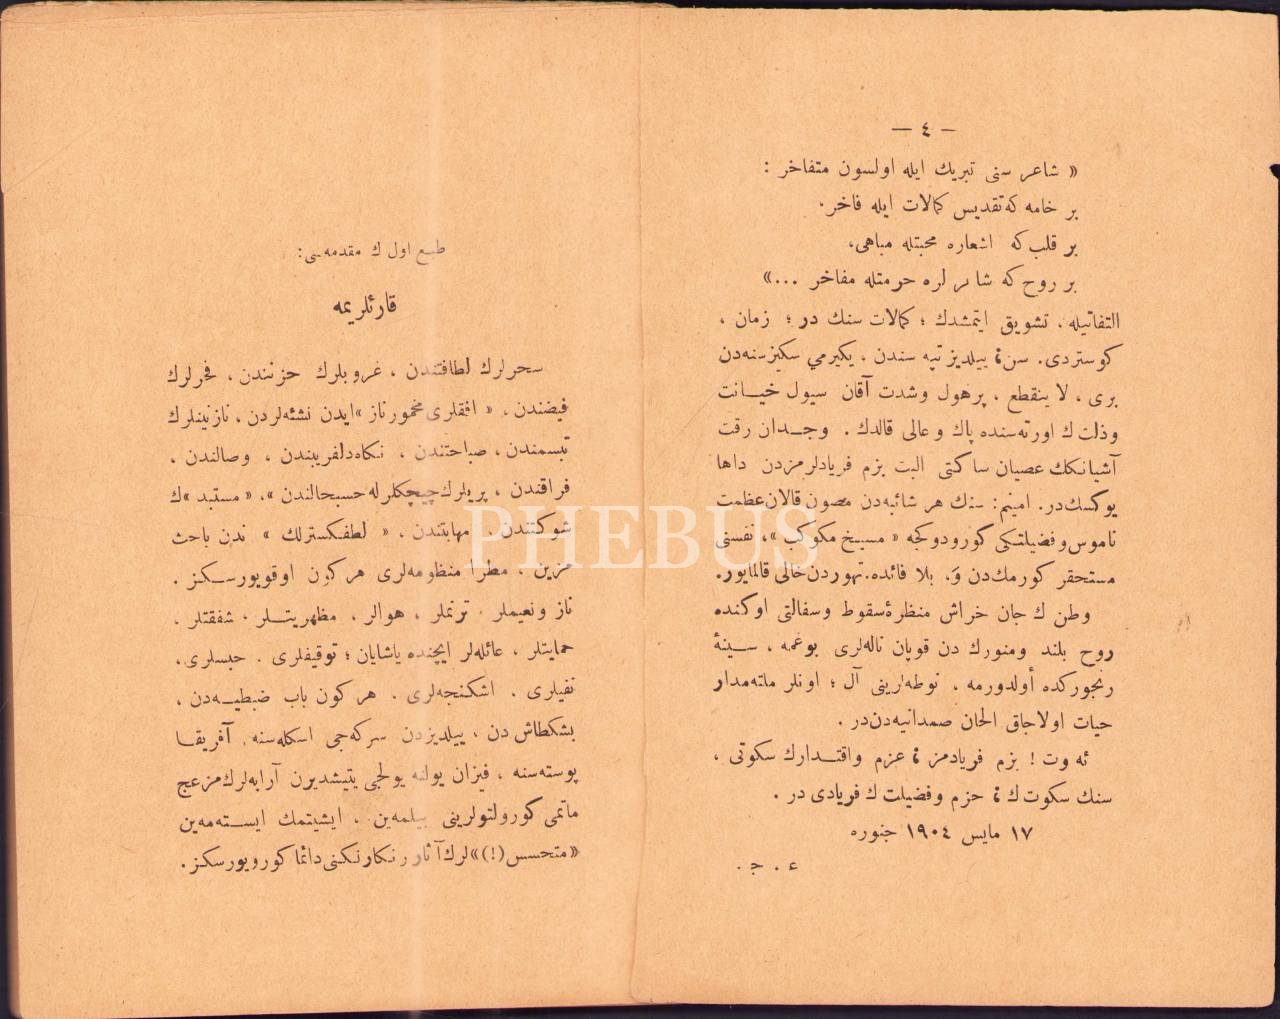 — ٤ —
« شاعر سنی تبريك ايله اولسون متفاخر :
بر خامه كه تقديس كمالات ايله فاخر .
بر قلب كه اشعاره محبتله مباهی،
بر روح كه شاعر لره حرمتله مفاخر ...»
التفاتيله ، تشويق ايتمشدك ؛ كمالات سنك در ؛ زمان ،
كوستردی . سن ؛ ييلديز تپه سندن ، يكيرمي سكيز سنه دن
بری ، لا ينقطع ، پرهول وشدت آقان سيول خيانت
وذلت ك اورته سنده پاك و عالی قالدك . وجدان رقت
آشيانكك عصيان ساكتی البت بزم فريادلرمزدن داها
يوكسك در . امينم : سنك هر شائبه دن مصون قالان عظمت
ناموس وفضيلتكی كوردوكجه « مسيخ مكوكب » ، نفسنی
مستحقر كورمك دن وَ، بلا فائده . تهور دن خالی قالمايور .
وطن ك جان خراش منظرهٔ سقوط وسفالتی اوكنده
روح بلند ومنورك دن قوپان ناله لری بوغمه ، سينهٔ
رنجوركده أولدورمه ، نوطه لرينی آل ؛ اونلر ملته مدار
حيات اولاجاق الحان صمدانيه دن در .
ئه وت ! بزم فريادمز ؛ عزم واقتدارك سكوتی ،
سنك سكوت ك ؛ حزم وفضيلت ك فريادی در .
١٧ مايس ١٩٠٤ جنوره
ع . ج .
طبع اول ك مقدمه سی :
قارئلريمه
سحرلرك لطافتندن ، غروبلرك حزنندن ، فجرلرك
فيضندن ، « افقلری مخمور ناز » ايدن نشئه لردن ، نازنينلرك
تبسمندن ، صباحتندن ، نكاه دلفريبندن ، وصالندن ،
فراقندن ، پريلرك چيچكلرله حسبحالندن » ، « مستبد » ك
شوكتندن مهابتندن ، « لطفكسترلك » ندن باحث
مزين ، مطرا منظومه لری هر كون اوقويورسكز .
ناز ونعيملر . ترنملر ، هوالر ، مظهريتلر . شفقتلر ،
حمايتلر ، عائله لر ايچنده ياشايان ؛ توقيفلری . حبسلری ،
نفيلری . اشكنجه لری . هر كون باب ضبطيه دن ،
بشكطاش دن ، ييلديزدن سركه جی اسكله سنه ، آفريقا
پوسته سنه ، فيزان يولنه يولجی يتيشديرن آرابه لرك مزعج
ماتمی كورولتولرينی بيلمه ين ، ايشيتمك ايسته مه ين
« متحسس (!) » لرك آثار رنكارنكنی دائما كورويورسكز .
PHEBUS